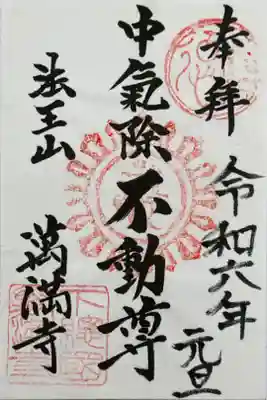 奉拜
令和六年
元旦
中氣除不動尊
法王山
萬満寺